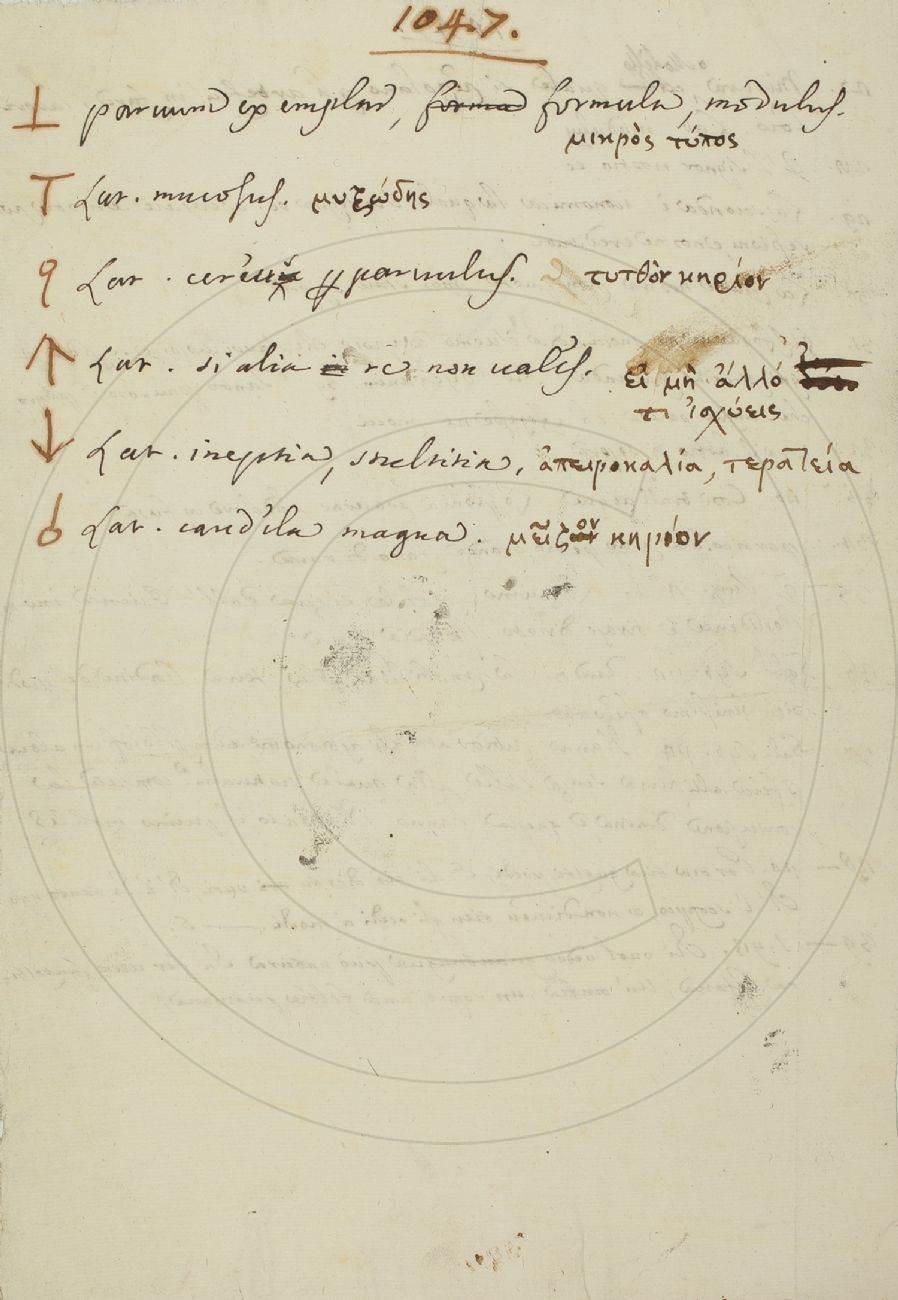 1047.
⊥ paruum exemplar, forma formula, modulus.
μικρὸς τύπος
T Lat. mucosus. μυξώδης
Lat. cereus paruulus. τυτθὸν κηρίον
↑ Lat. si alia in re non uales. εἰ μὴ ἄλλό
τι ἰσχύεις
↓ Lat. ineptia, stultitia, ἀπειροκαλία, τερατεία
Lat. candela magna. μεῖζον κηρίον